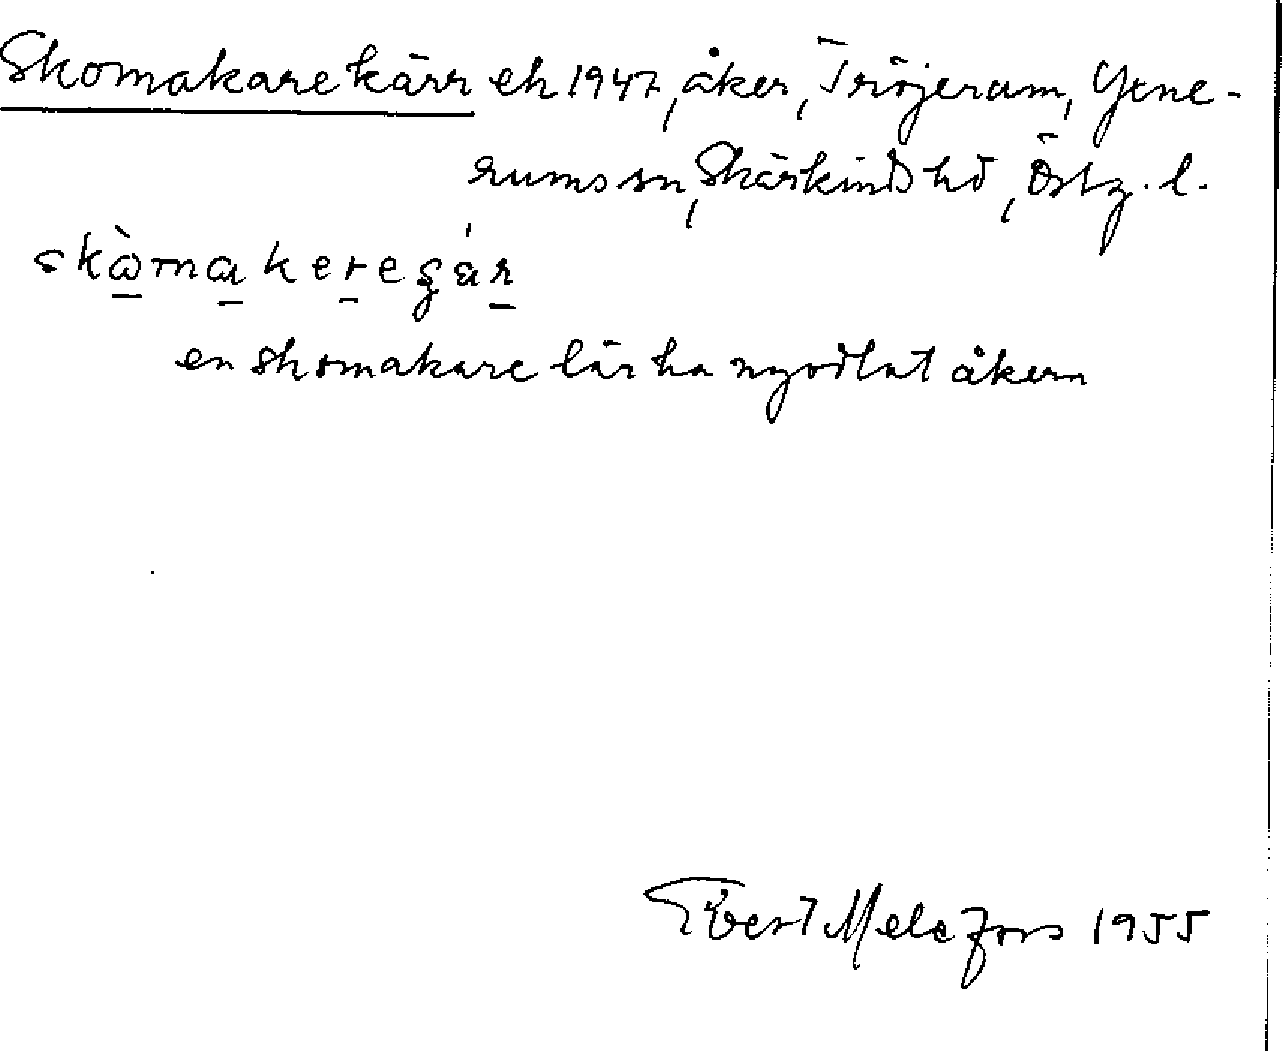 Skomakarekärr ek 1947, åker, Tröjerum, Gene-
rums sn, Skärkinds hd, Östg. l.
skòmakeregár
en skomakare lär ha nyodlat åkern
Evert Melefors 1955